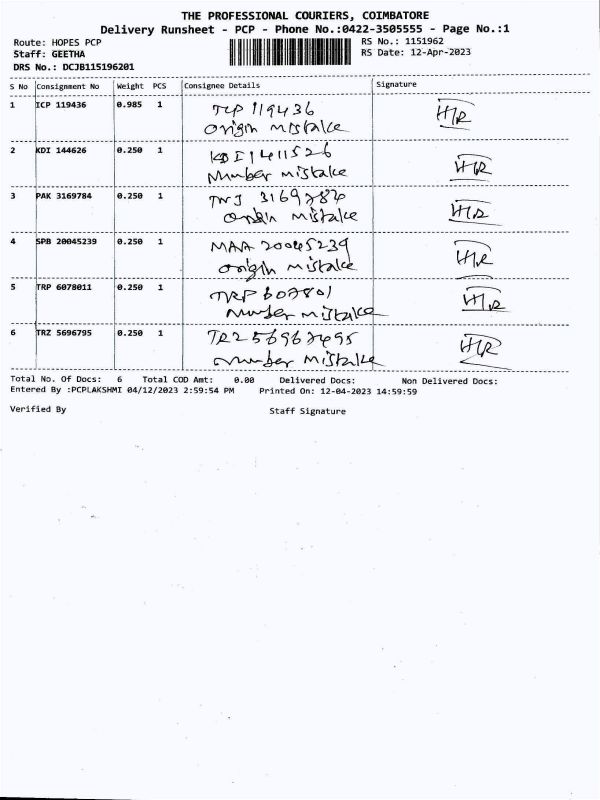 THE PROFESSIONAL COURIERS, COIMBATORE
Delivery Runsheet - PCP - Phone No.:0422-3505555 - Page No.:1
Route: HOPES PCP RS No.: 1151962
Staff: GEETHA RS Date: 12-Apr-2023
DRS No.: DCJB115196201
S No Consignment No Weight PCS Consignee Details Signature
1 ICP 119436 0.985 1 TCP 119436 HR
Origin mistake
2 KDI 144626 0.250 1 KDI 1411526 HR
Number mistake
3 PAK 3169784 0.250 1 TNJ 3169784 HR
Origin mistake
4 SPB 20045239 0.250 1 MAA 20045239 HR
origin mistake
5 TRP 6078011 0.250 1 TRP 607801 HR
Number mistake
6 TRZ 5696795 0.250 1 TRZ 56967495 HR
Number mistake
Total No. Of Docs: 6 Total COD Amt: 0.00 Delivered Docs: Non Delivered Docs:
Entered By :PCPLAKSHMI 04/12/2023 2:59:54 PM Printed On: 12-04-2023 14:59:59
Verified By Staff Signature